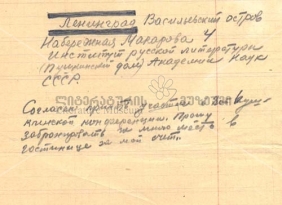 Ленинград Васильевский остров
Набережная Макарова 4
Институт русской литературы
(Пушкинский дом) Академии Наук
СССР
ლიტერატურის მუზეუმი
Согласен принять участие Пуш
кинской конференции. Прошу
забронировать за мной место в
гостинице за мой счет.